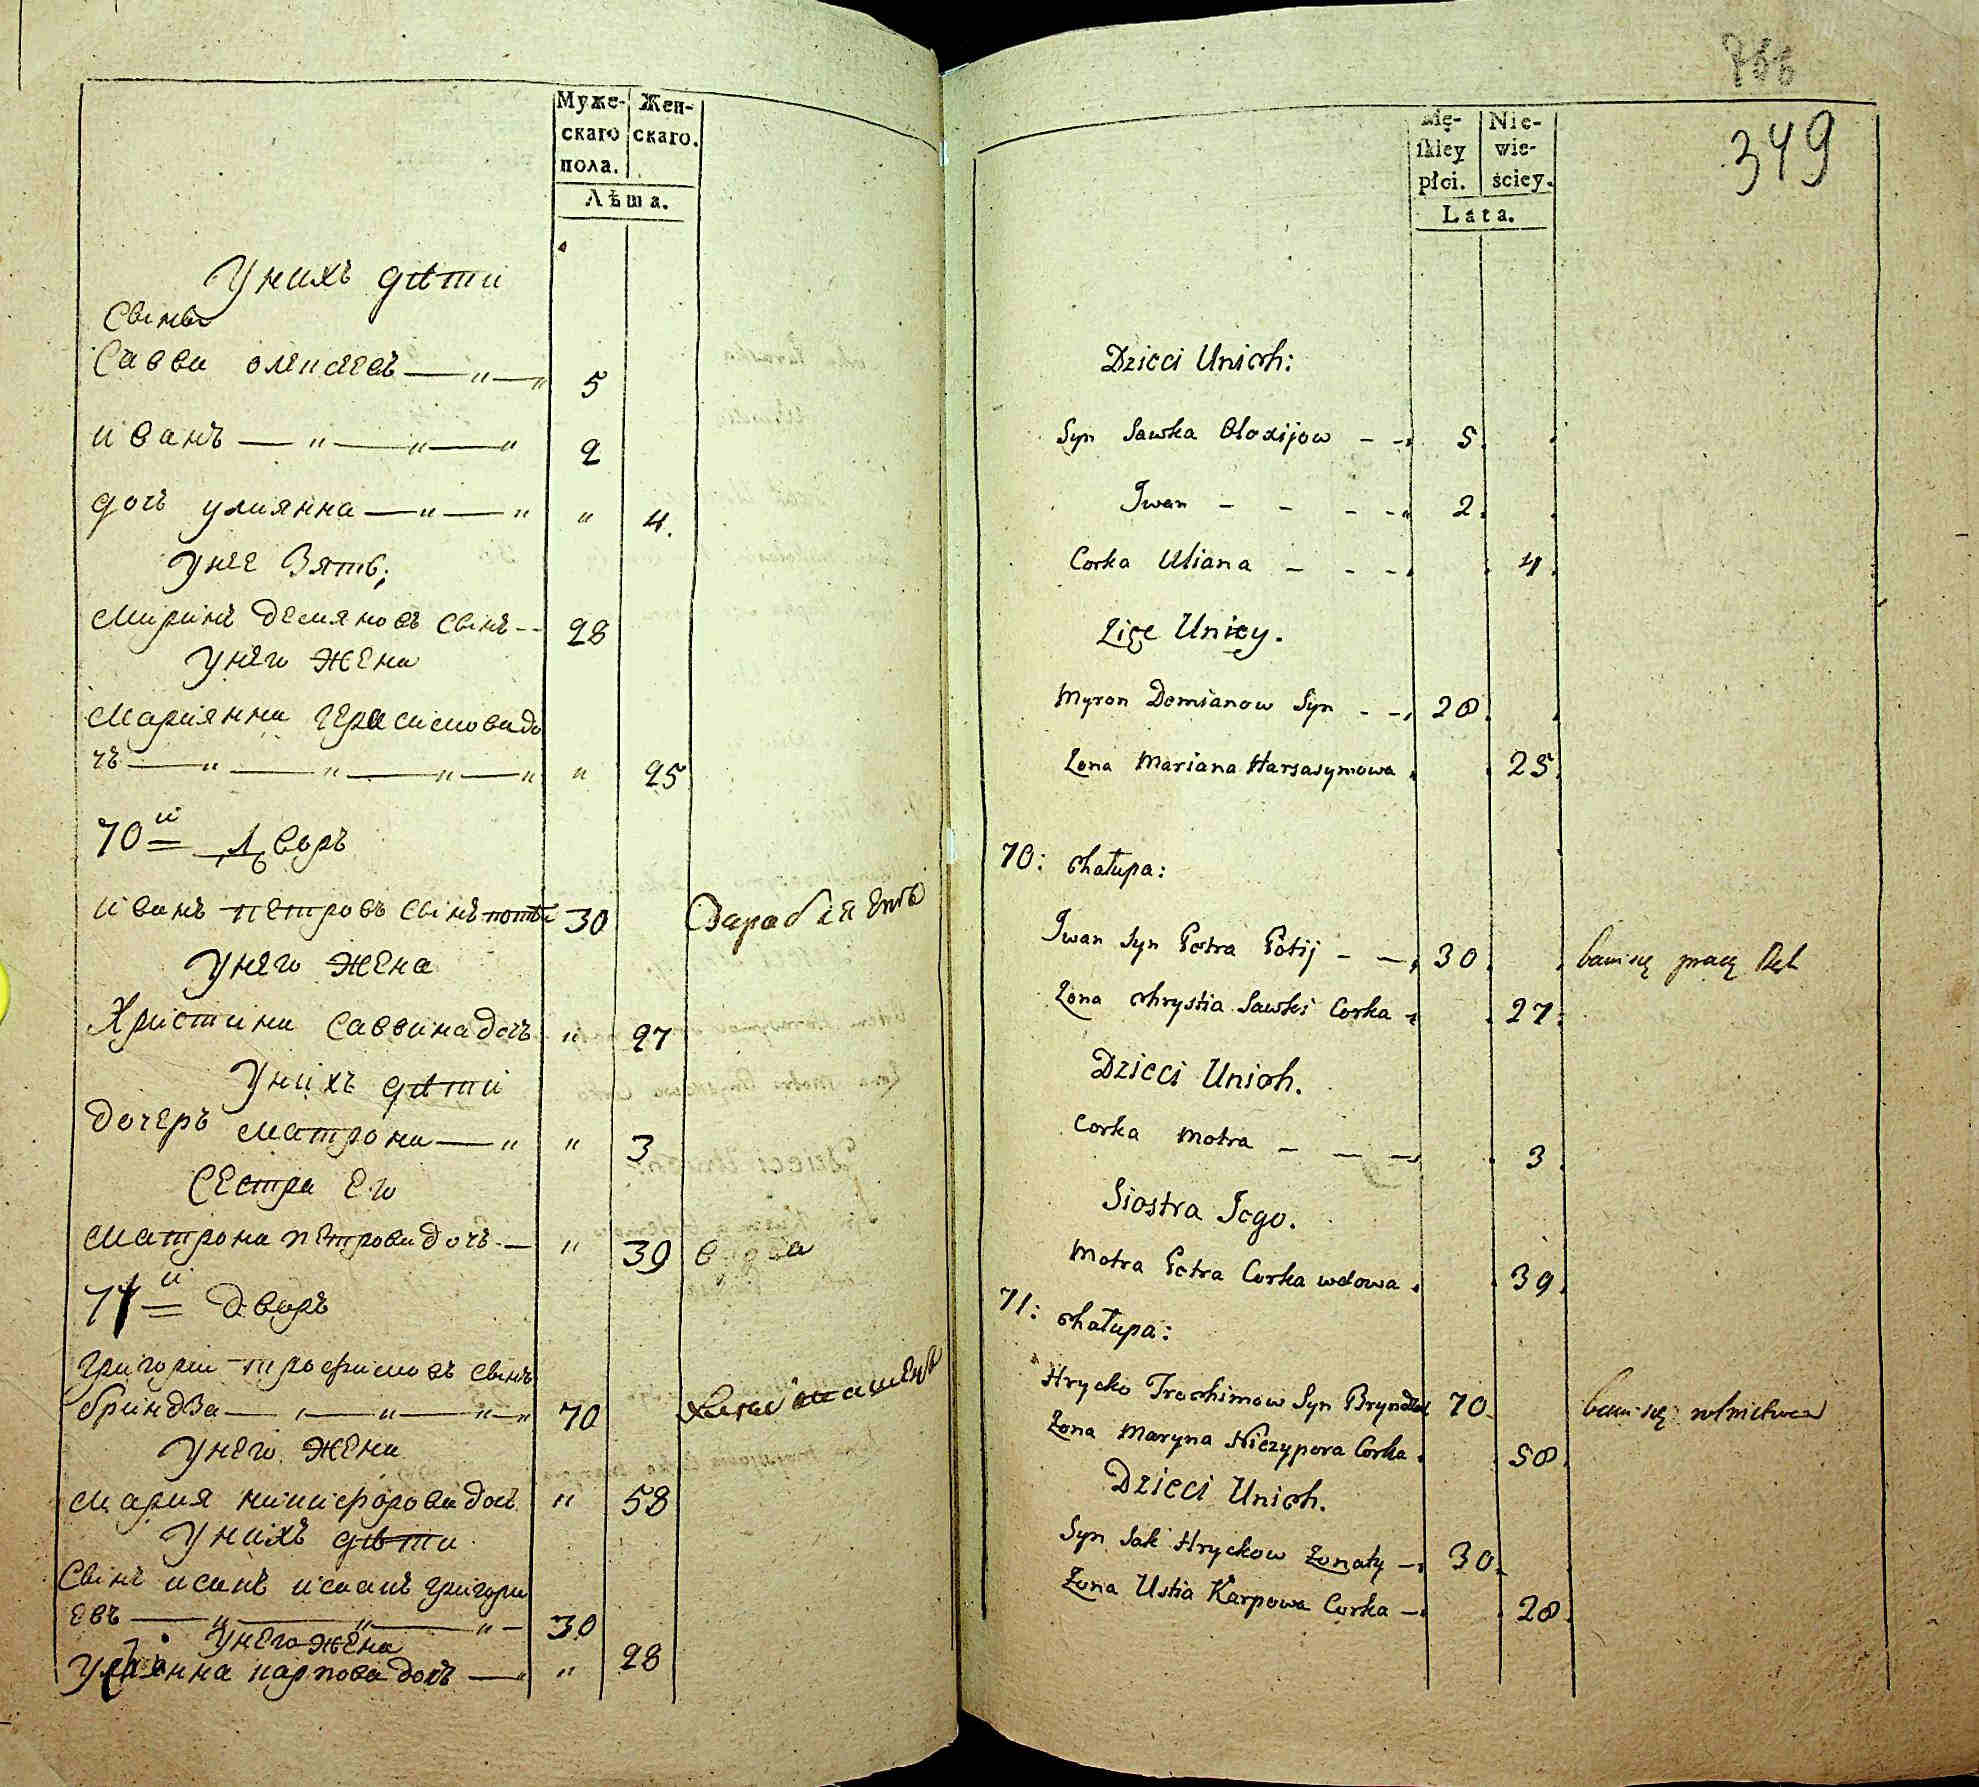 Муже- Жен-
скаго скаго.
пола.
Лѣта.
У нихъ дѣти
Синъ
Савва олеѯѣевъ — „ — „ 5
иванъ — „ — „ — „ 2
дочь улиянна — „ — „ „ 4.
У нее Зять;
Миринъ Демяновъ синъ -- 28
У него жена
Мариянна герасимова до
чь — „ — „ — „ — „ „ 25
70й Дворъ
иванъ петровъ синъ потѣй 30
У него жена
Христина Саввина дочь „ 27
У нихъ дѣти
дочеръ матрона — „ „ 3
Сестра его
Матрона петрова дочь — „ 39 вдова
71й Дворъ
григорій трофимовъ синъ
бриндза — „ — „ — „ 70
У него жена
Мария никифорова дочь „ 58
У нихъ дѣти
Синъ исакъ исаакъ григори
евъ — „ — „ — „ — 30
У него жена
Улиянна карпова дочь — „ „ 28
766
349
Mę- Nie-
skiey wie-
płci. ściey.
Lata.
Dzieci Unich:
Syn Sawka Olexijow - - 5.
Iwan - - - - 2.
Corka Uliana - - - 4.
Zięc Uniey.
Myron Demianow Syn - - 28.
Zona Mariana Harsasymowa 25.
70: chałupa:
Iwan Syn Petra Potij - - 30. bawi się pracą Rąk
Zona Chrystia Sawki Corka 27.
Dzieci Unich.
Corka Motra - - - 3.
Siostra Jego.
Motra Petra Corka wdowa 39.
71: chałupa:
Hrycko Trochimow Syn Bryndza 70. bawi się rolnictwem
Zona Maryna Niczypora Corka 58.
Dzieci Unich.
Syn Sak Hryckow Zonaty - 30.
Zona Ustia Karpowa Corka - 28.